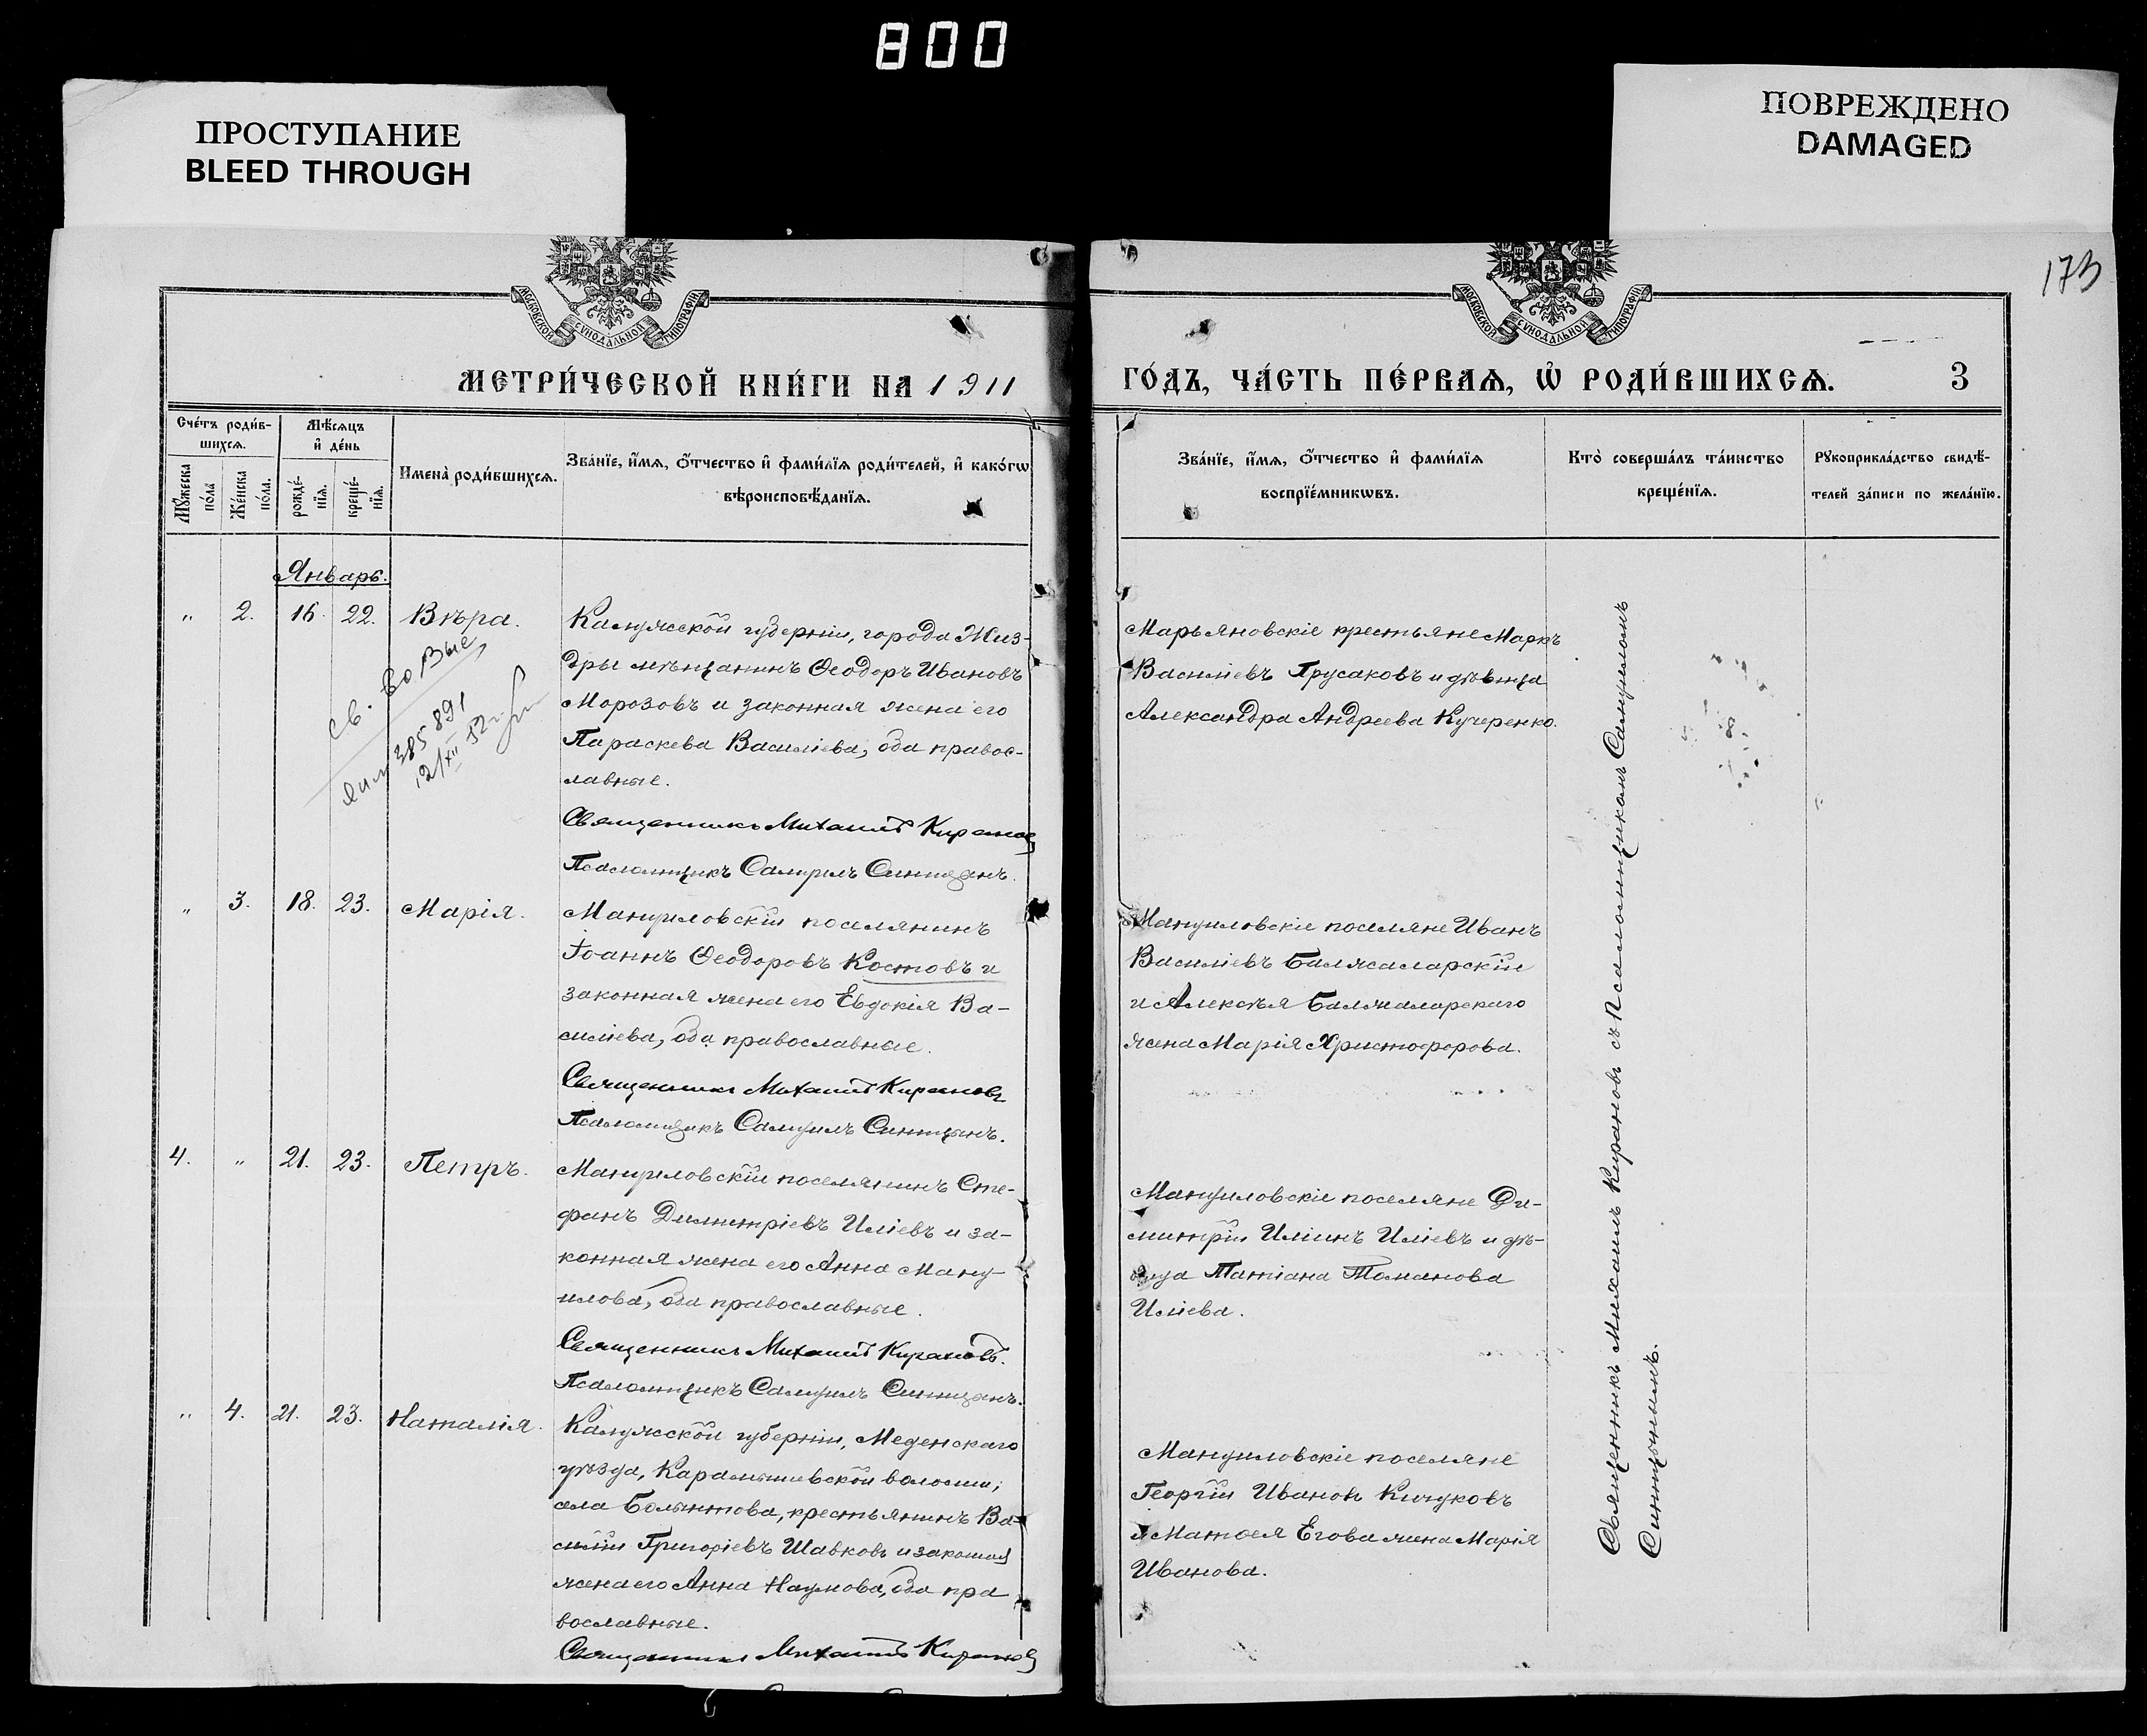 800
ПРОСТУПАНИЕ
BLEED THROUGH
ПОВРЕЖДЕНО
DAMAGED
173
МОСКОВСКОЙ СѴНОДАЛЬНОЙ ТИПОГРАФІИ
МОСКОВСКОЙ СѴНОДАЛЬНОЙ ТИПОГРАФІИ
МЕТРИ́ЧЕСКОЙ КНИ́ГИ НА 1911
ГО́ДЪ, ЧА́СТЬ ПЕ́РВАѦ, Ѡ҆ РОДИ́ВШИХСѦ.
3
Сче́тъ роди́в-
шихсѧ.
Мꙋ́жеска
по́ла
Же́нска
по́ла.
Мѣ́сѧцъ
и҆ де́нь
рожде́-
нїѧ.
креще́-
нїѧ.
Имена̀ роди́вшихсѧ.
Зва́нїе, и҆́мѧ, о҆́тчество и҆ фами́лїѧ роди́телей, и҆ како́гѡ
вѣроисповѣ́данїѧ.
Зва́нїе, и҆́мѧ, о҆́тчество и҆ фами́лїѧ
воспрїе́мникѡвъ.
Кто̀ соверша́лъ та́инство
креще́нїѧ.
Рꙋкоприкла́дство свидѣ́-
телей за́писи по жела́нїю.
Январь.
" 2. 16. 22. Вѣра.
Калужской губерніи, города Жиз-
дры мѣщанинъ Ѳеодоръ Ивановъ
Морозовъ и законная жена его
Параскева Василіева, оба правос-
лавные.
Священникъ Михаилъ Кирановъ
Псаломщикъ Самуилъ Синицанъ.
Марьяновскіе крестьяне Маркъ
Василіевъ Прусаковъ и дѣвица
Александра Андреева Кучеренко.
св.
385891
12/XII 52
" 3. 18. 23. Марія.
Мануиловскій поселянинъ
Іоаннъ Ѳеодоровъ Костовъ и
законная жена его Евдокія Ва-
силіева, оба православные.
Священникъ Михаилъ Кирановъ
Псаломщикъ Самуилъ Синицынъ.
Мануиловскіе поселяне Иванъ
Василіевъ Балжаларскій
и Алексѣя Балжаларскаго
жена Марія Христофорова.
4. " 21. 23. Петръ.
Мануиловскій поселянинъ Сте-
фанъ Димитріевъ Иліевъ и за-
конная жена его Анна Ману-
илова, оба православные.
Священникъ Михаилъ Кирановъ.
Псаломщикъ Самуилъ Синицанъ.
Мануиловскіе поселяне Ди-
митрій Иліинъ Иліевъ и дѣ-
вица Татіана Томанова
Иліева.
" 4. 21. 23. Наталія.
Калужской губерніи, Меденскаго
уѣзда, Карамышевской волости,
села Болынтова, крестьянинъ Ва-
силій Григоріевъ Шавковъ и законная
жена его Анна Наумова, оба пра
вославные.
Священникъ Михаилъ Кирановъ
Мануиловскіе поселяне
Георгій Ивановъ Кичуковъ
и Матѳея Егова жена Марія
Иванова.
Священникъ Михаилъ Кирановъ съ Псаломщикомъ Самуиломъ
Синицынымъ.